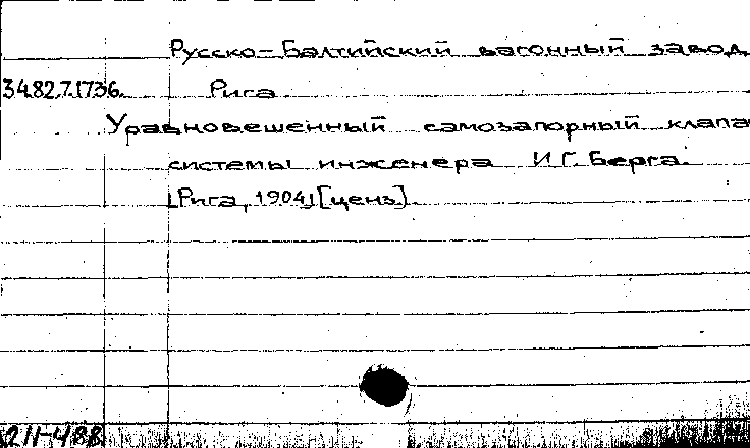 Русско-Балтийский вагонный завод
34.82.7.1736. Рига
Уравновешенный самозапорный клапа
системы инженера И.Г. Берга.
[Рига, 1904] [ценз].
211-488